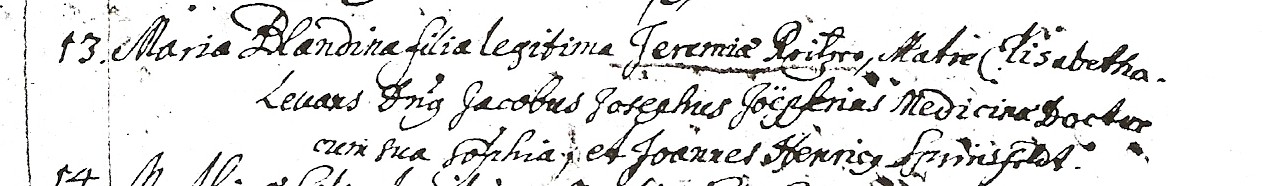 13. Maria Blandina filia legitima Jeremiæ Matre Elisabetha.
Levans Dn9 Jacobus Josephus Medicinæ Doctor
cum sua Sophia, et Joannes Henric9
14